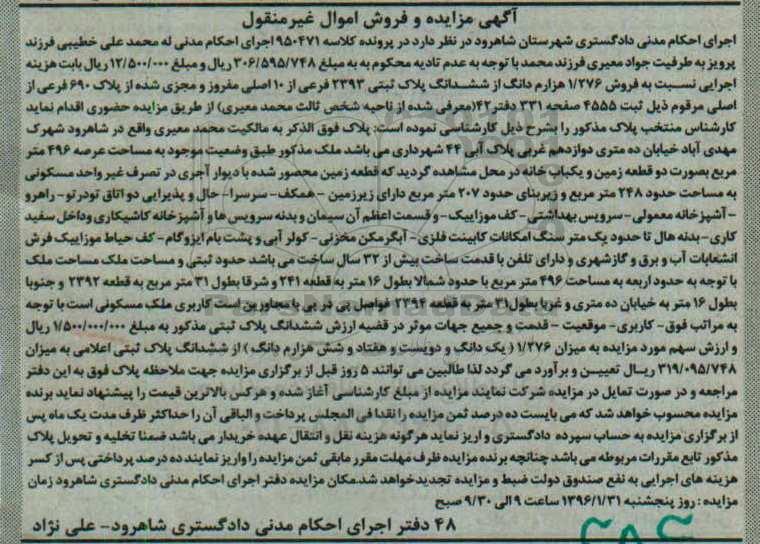 آگهی مزایده و فروش اموال غیرمنقول
اجرای احکام مدنی دادگستری شهرستان شاهرود در نظر دارد در پرونده کلاسه ۹۵۰۴۷۱ اجرای احکام مدنی له محمد علی خطیبی فرزند
پرویز به طرفیت جواد معیری فرزند محمد با توجه به عدم تادیه محکوم به به مبلغ ۳۰۶/۵۹۵/۷۴۸ ریال و مبلغ ۱۲/۵۰۰/۰۰۰ ریال بابت هزینه
اجرایی نسبت به فروش ۱/۲۷۶ هزارم دانگ از ششدانگ پلاک ثبتی ۲۳۹۳ فرعی از ۱۰ اصلی مفروز و مجزی شده از پلاک ۶۹۰ فرعی از
اصلی مرقوم ذیل ثبت ۴۵۵۵ صفحه ۳۳۱ دفتر ۴۲(معرفی شده از ناحیه شخص ثالث محمد معیری) از طریق مزایده حضوری اقدام نماید
کارشناس منتخب پلاک مذکور را بشرح ذیل کارشناسی نموده است: پلاک فوق الذکر به مالکیت محمد معیری واقع در شاهرود شهرک
مهدی آباد خیابان ده متری دوازدهم غربی پلاک آبی ۴۴ شهرداری می باشد ملک مذکور طبق وضعیت موجود به مساحت عرصه ۴۹۶ متر
مربع بصورت دو قطعه زمین و یکباب خانه در محل مشاهده گردید که قطعه زمین محصور شده با دیوار آجری در تصرف غیر واحد مسکونی
به مساحت حدود ۲۴۸ متر مربع و زیربنای حدود ۲۰۷ متر مربع دارای زیرزمین - همکف- سرسرا- حال و پذیرایی دو اتاق تودرتو- راهرو
- آشپزخانه معمولی- سرویس بهداشتی- کف موزاییک- و قسمت اعظم آن سیمان و بدنه سرویس ها و آشپزخانه کاشیکاری وداخل سفید
کاری- بدنه هال تا حدود یک متر سنگ امکانات کابینت فلزی- آبگرمکن مخزنی- کولر آبی و پشت بام ایزوگام- کف حیاط موزاییک فرش
انشعابات آب و برق و گازشهری و دارای تلفن با قدمت ساخت بیش از ۳۲ سال ساخت می باشد حدود ثبتی و مساحت ملک مساحت ملک
با توجه به حدود اربعه به مساحت ۴۹۶ متر مربع با حدود شمالا بطول ۱۶ متر به قطعه ۲۴۱ و شرقا بطول ۳۱ متر مربع به قطعه ۲۳۹۲ و جنوبا
بطول ۱۶ متر به خیابان ده متری و غربا بطول۳۱ متر به قطعه ۲۳۹۴ فواصل پی در پی با مجاورین است کاربری ملک مسکونی است با توجه
به مراتب فوق- کاربری- موقعیت - قدمت و جمیع جهات موثر در قضیه ارزش ششدانگ پلاک ثبتی مذکور به مبلغ ۱/۵۰۰/۰۰۰/۰۰۰ ریال
و ارزش سهم مورد مزایده به میزان ۱/۲۷۶ ( یک دانگ و دویست و هفتاد و شش هزارم دانگ) از ششدانگ پلاک ثبتی اعلامی به میزان
۳۱۹/۰۹۵/۷۴۸ ریال تعیین و برآورد می گردد لذا طالبین می توانند ۵ روز قبل از برگزاری مزایده جهت ملاحظه پلاک فوق به این دفتر
مراجعه و در صورت تمایل در مزایده شرکت نمایند مزایده از مبلغ کارشناسی آغاز شده و هرکس بالاترین قیمت را پیشنهاد نماید برنده
مزایده محسوب خواهد شد که می بایست ده درصد ثمن مزایده را نقدا فی المجلس پرداخت و الباقی آن را حداکثر ظرف مدت یک ماه پس
از برگزاری مزایده به حساب سپرده دادگستری واریز نماید هرگونه هزینه نقل و انتقال عهده خریدار می باشد ضمنا تخلیه و تحویل پلاک
مذکور تابع مقررات مربوطه می باشد چنانچه برنده مزایده ظرف مهلت مقرر مابقی ثمن مزایده را واریز نمایند ده درصد پرداختی پس از کسر
هزینه های اجرایی به نفع صندوق دولت ضبط و مزایده تجدیدخواهد شد.مکان مزایده دفتر اجرای احکام مدنی دادگستری شاهرود زمان
مزایده : روز پنجشنبه ۱۳۹۶/۱/۳۱ ساعت ۹ الی ۹/۳۰ صبح
۴۸ دفتر اجرای احکام مدنی دادگستری شاهرود- علی نژاد